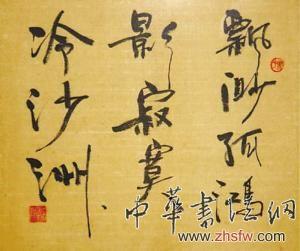 飘渺孤鸿
影寂寞
冷沙洲
中華書鴻网
www.zhsfw.com